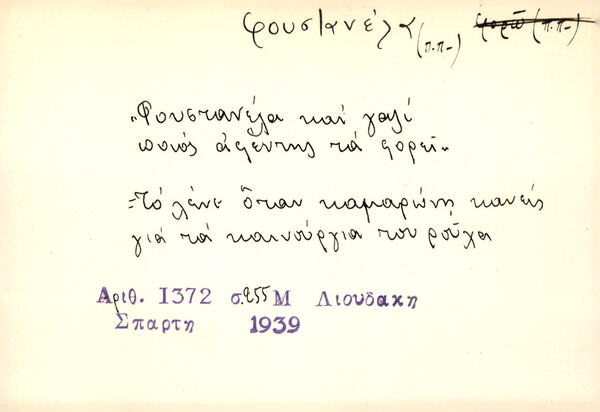 φουστανέλα (π.π-) φορῶ (π.π-)
„Φουστανέλα καί γαλί
ποιός ἀφέντης τά φορεῖ„
=Τό λένε ὅταν καμαρώνη κανείς
γιά τά καινούργια του ροῦχα
Αριθ. 1372 σ.255 Μ Λιουδακη
Σπαρτη 1939